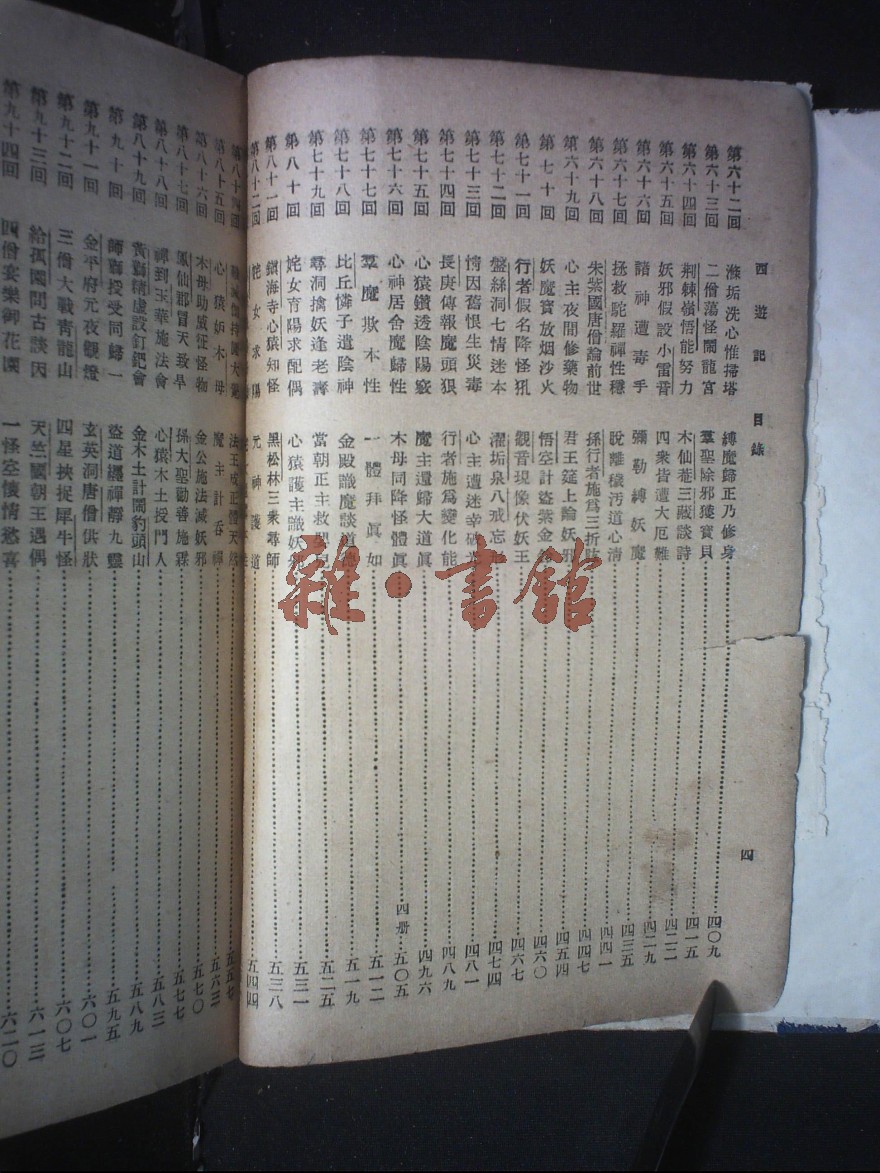 西遊記 目錄 四
第六十二回 滌垢洗心惟掃塔 縛魔歸正乃修身 四〇九
第六十三回 二僧蕩怪鬧龍宮 羣聖除邪獲寶貝 四一五
第六十四回 荆棘嶺悟能努力 木仙菴三藏談詩 四二二
第六十五回 妖邪假設小雷音 四衆皆遭大厄難 四二九
第六十六回 諸神遭毒手 彌勒縛妖魔 四三五
第六十七回 拯救駝羅禪性穩 脫離穢汚道心清 四四一
第六十八回 朱紫國唐僧論前世 孫行者施爲三折肱 四四七
第六十九回 心主夜間修藥物 君王筵上論妖邪 四五四
第七十回 妖魔寶放烟沙火 悟空計盜紫金 四六〇
第七十一回 行者假名降怪犼 觀音現像伏妖王 四六七
第七十二回 盤絲洞七情迷本 濯垢泉八戒忘 四七四
第七十三回 情因舊恨生災毒 心主遭迷幸破 四八一
第七十四回 長庚傳報魔頭狠 行者施爲變化能 四八九
第七十五回 心猿鑽透陰陽竅 魔主還歸大道眞 四九六
第七十六回 心神居舍魔歸性 木母同降怪體眞 四册 五〇五
第七十七回 羣魔欺本性 一體拜眞如 五一二
第七十八回 比丘憐子遣陰神 金殿識魔談道 五一九
第七十九回 尋洞擒妖逢老壽 當朝正主救嬰兒 五二五
第八十回 姹女育陽求配偶 心猿護主識妖 五三一
第八十一回 鎭海寺心猿知怪 黑松林三衆尋師 五三八
第八十二回 姹女求陽 元神護道 五四四
第八十四回 法王成正體天然 五五七
第八十五回 心猿妒木母 魔主計吞禪 五六三
第八十六回 木母助威征怪物 金公施法滅妖邪 五七〇
第八十七回 鳳仙郡冒天致旱 孫大聖勸善施霖 五七七
第八十八回 禪到玉華施法會 心猿木土授門人 五八三
第八十九回 黃獅精虛設釘鈀會 金木土計鬧豹頭山 五八九
第九十回 師獅授受同歸一 盜道纏禪靜九靈 五九五
第九十一回 金平府元夜觀燈 玄英洞唐僧供狀 六〇一
第九十二回 三僧大戰靑龍山 四星挾捉犀牛怪 六〇七
第九十三回 給孤園問古談因 天竺國朝王遇偶 六一三
第九十四回 四僧宴樂御花園 一怪空懷情慾喜 六二〇
雜·書館